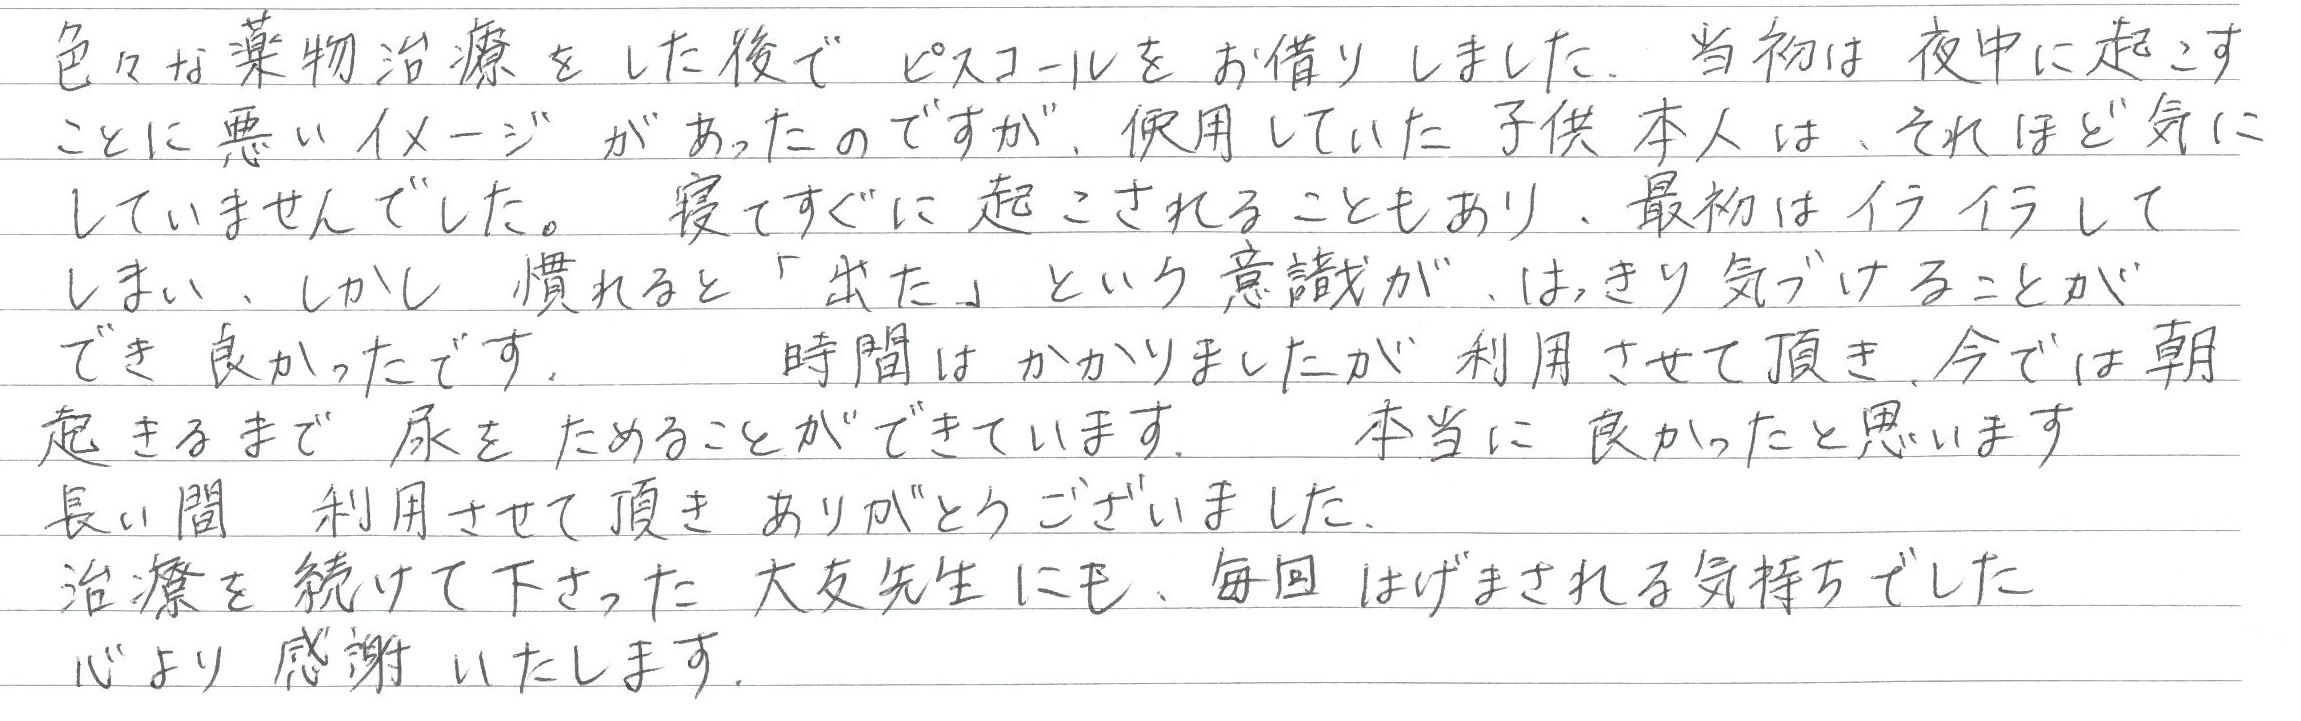 色々な薬物治療をした後で ピスコールをお借りしました. 当初は夜中に起こす
ことに悪いイメージがあったのですが、使用していた子供本人は、それほど気に
していませんでした。 寝てすぐに起こされることもあり、最初はイライラして
しまい、しかし 慣れると「出た」という意識が、はっきり気づけることが
でき良かったです. 時間はかかりましたが利用させて頂き、今では朝
起きるまで尿をためることができています. 本当に良かったと思います
長い間 利用させて頂きありがとうございました.
治療を続けて下さった大友先生にも、毎回はげまされる気持ちでした
心より感謝いたします.